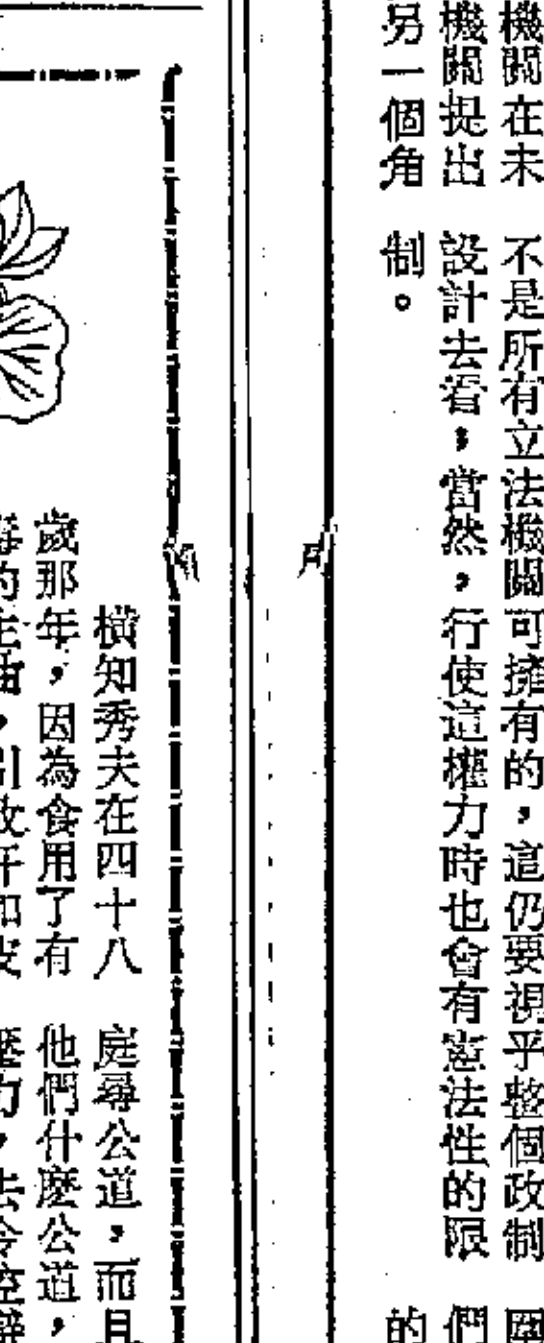 機關在未
機關提出
另一個角
不是所有立法機關可擁有的，這仍要視乎整個政制
設計去看，當然，行使這權力時也會有憲法性的限
制。
們
的
橫知秀夫在四十八
歲那年，因為食用了有
庭尋公道，而且
他們什麼公道，